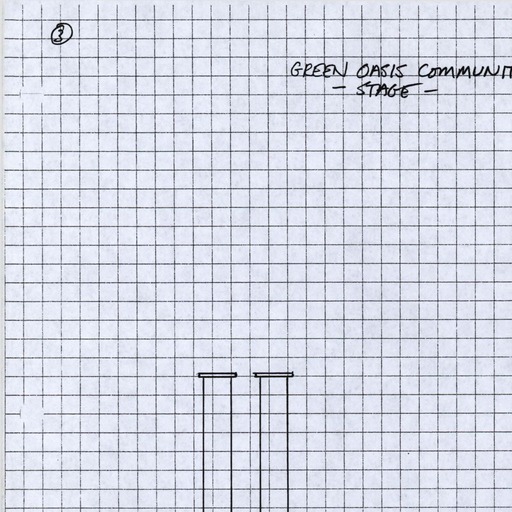 3
GREEN OASIS COMMUNIT
- STAGE -